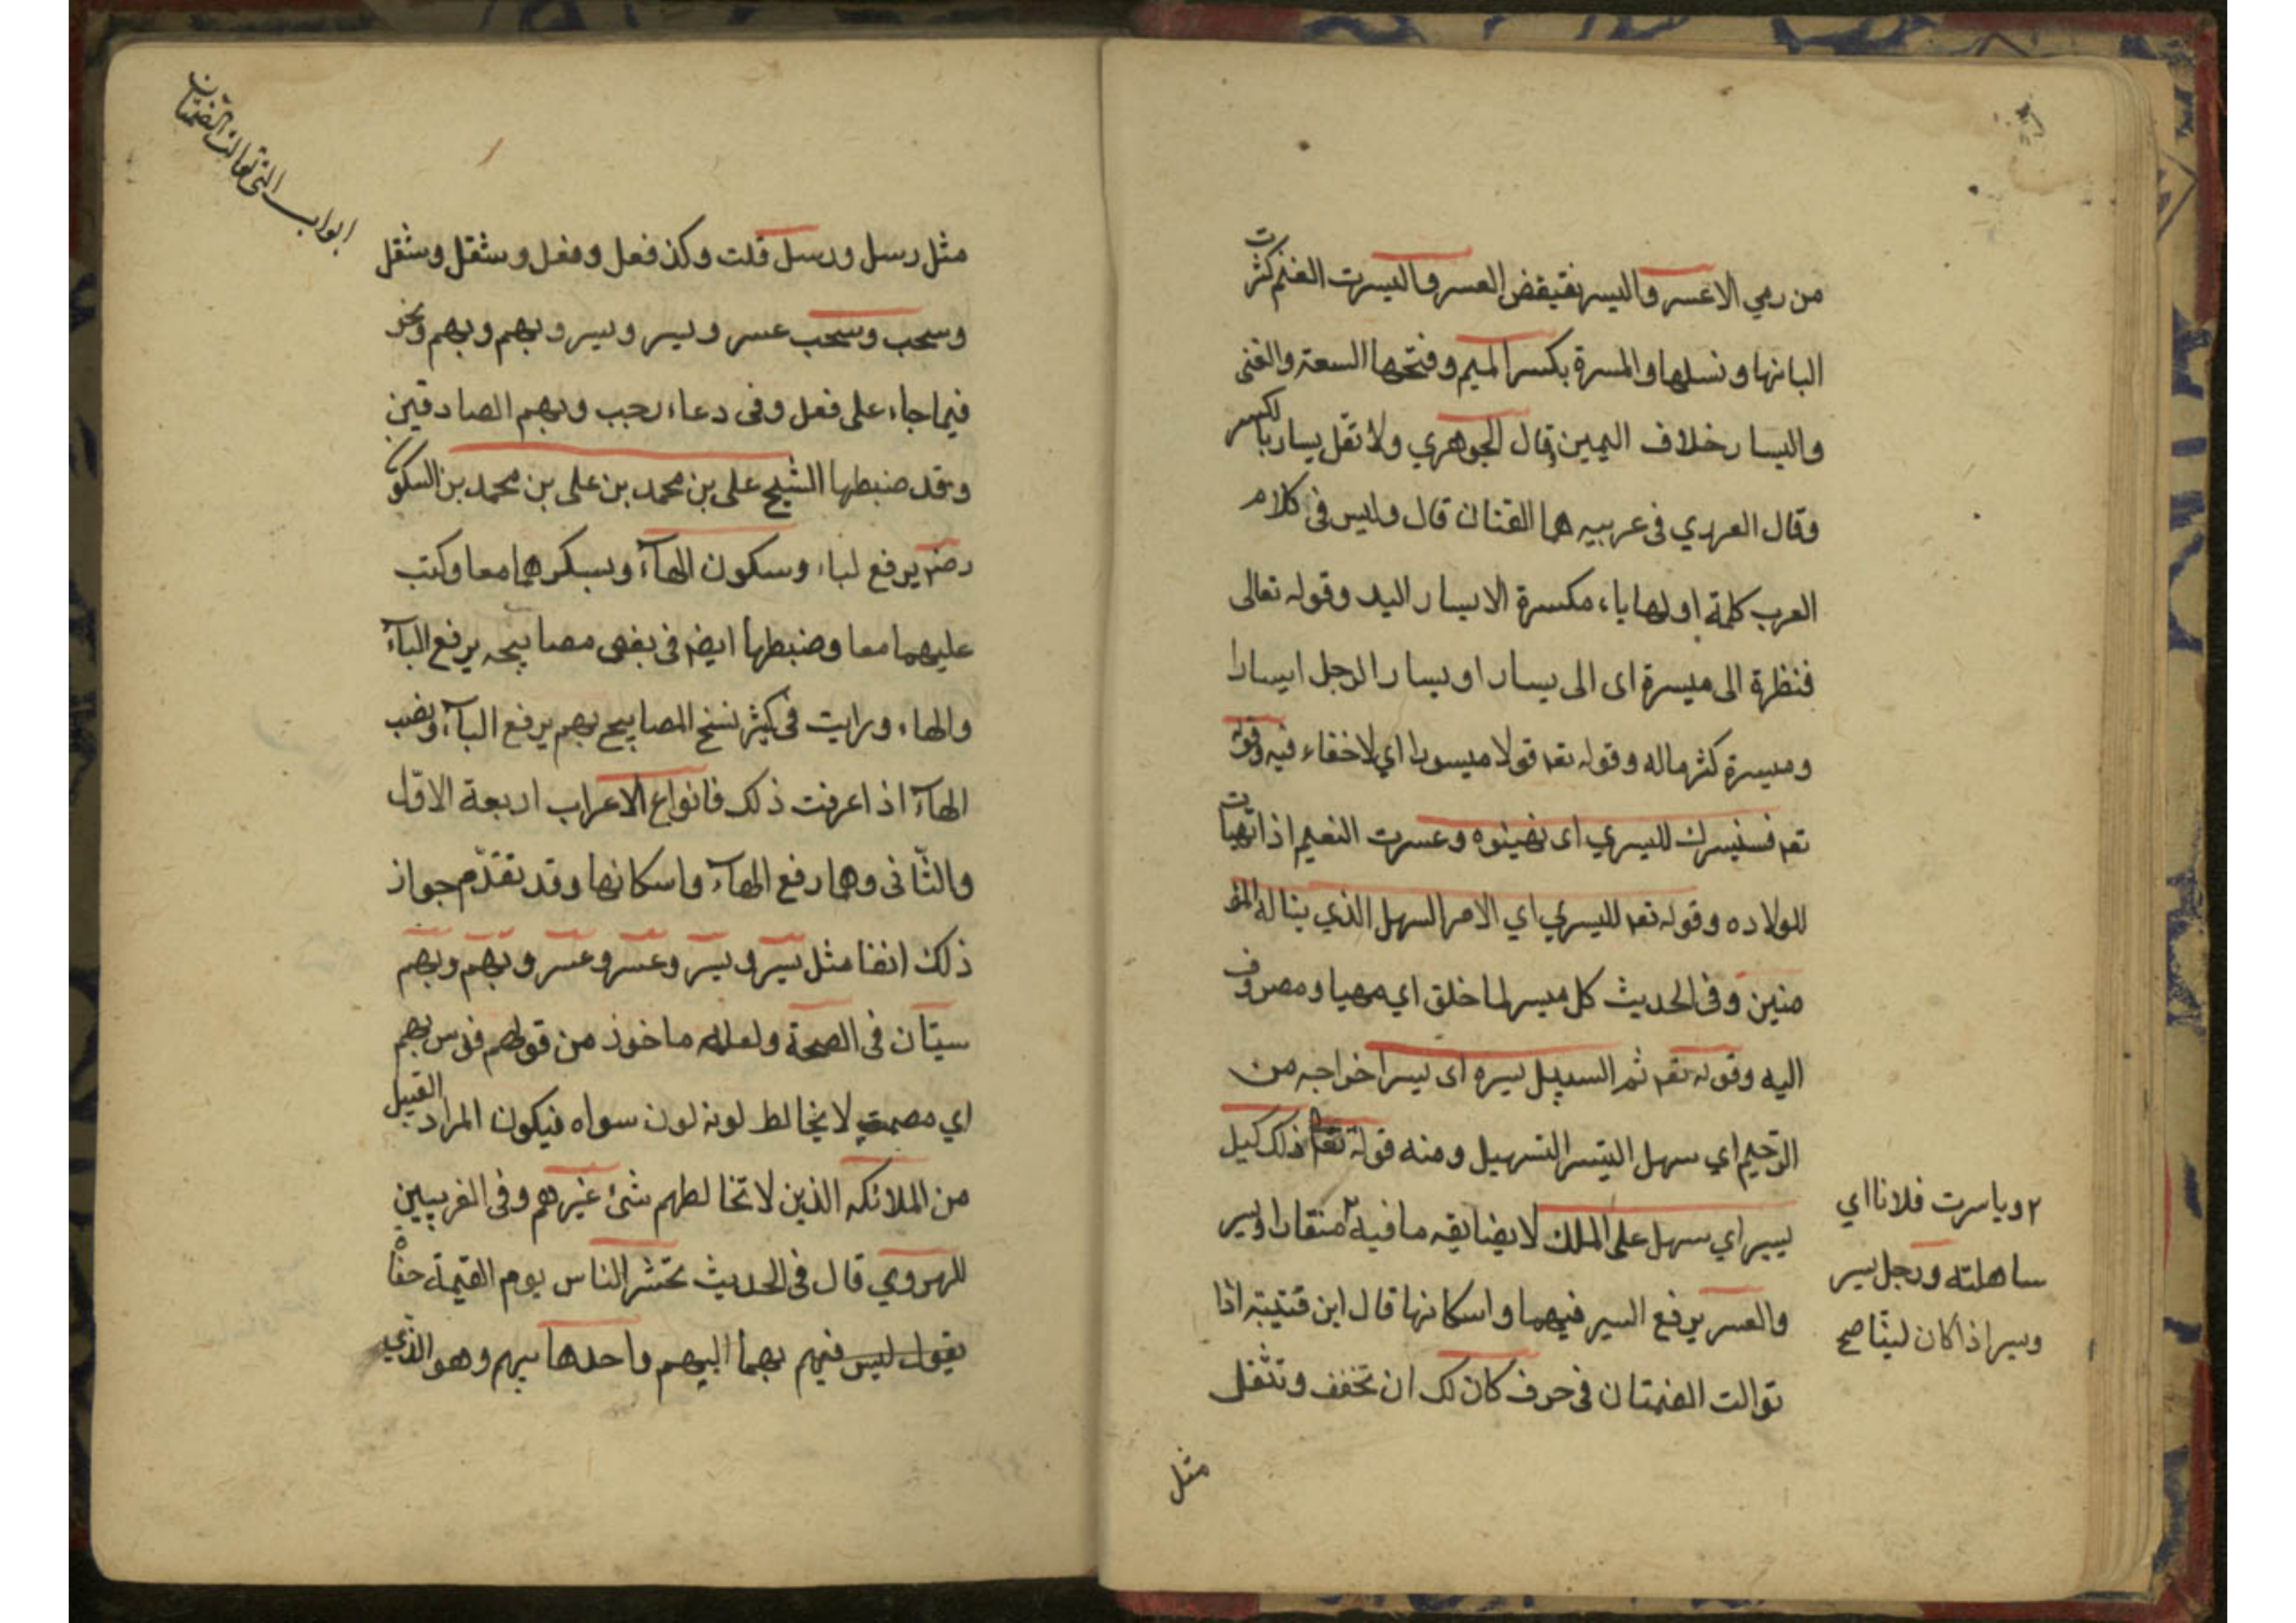 من رمي الاعسر واليسر نقيض العسر واليسرت الغنم كثرت
البانها ونسلها والمسرة بكسر الميم وفتحها السعة والغنى
واليسار خلاف اليمين قال الجوهري ولا تقل يسار بالكسر
وقال العريدي في عربيه هما لقتان قال وليس في كلام
العرب كلمة اولها ياء مكسرة الا يسار اليد وقوله تعالى
فنظرة الى ميسرة اى الى يسار او يسار الرجل ايسارا
وميسرة كثر ماله وقوله تعم قولا ميسورا اي لا خفاء فيه وقوله
تعم فسنيسرك لليسري اى نهينوه وعسرت النعيم اذا تهيات
للولاده وقوله تعم لليسري اي الامر السهل الذي يناله المؤ
منين وفى الحديث كل ميسر لما خلق اي مهيا ومصروف
اليه وقوله تعم ثم السبيل يسره اى يسر اخراجه من
الرحيم اي سهل اليتسر التسهيل ومنه قوله تعم ذلك كيل
يسير اي سهل على الملك لا يضايقه ما فيه ٢ منقادا ويسر
والعسر يرفع السير فيهما واسكانها قال ابن قتيبة اذا
توالت الضمتان في حرف كان لك ان تخفف وتثقل
مثل
٢ وياسرت فلانا اي
ساهلته ورجل يسر
ويسر اذا كان لينا صح
ابواب التي توالت الضمتان
مثل رسل ورسل قلت وكذ فعل وفعل وشقل وشقل
وسحب وسحب عسر ويسر ويسر وبهم وبهم ونحو
فيما جاء على فعل وفى دعاء رجب وبهم الصادقين
وقد ضبطها الشيخ على بن محمد بن على بن محمد بن السكون
رضم يرفع لباء وسكون الهآء وبسكرهما معا وكتب
عليهما معا وضبطها ايضم فى بغض مصابيحه يرفع البآء
والهاء ورايت فى كثير نسخ المصابيح بهم يرفع البآء ونصب
الهآء اذا عرفت ذلك فانواع الاعراب اربعة الاوّل
والثّانى وهما رفع الهآء واسكانها وقد تقدّم جواز
ذلك انفا مثل يسر ويسر وعسر وعسر وبهم وبهم
سيّان فى الصحة ولعله ماخوذ من قولهم فرس بهم
اي مصمت لا يخالط لونه لون سواه فيكون المراد القبيل
من الملائكه الذين لا تخالطهم شئ غيرهم وفى الغريبين
للهروي قال فى الحديث تحشر الناس يوم القيمة حفاة
يقول ليس فيهم بهما البهم واحدها بيهم وهو الذي